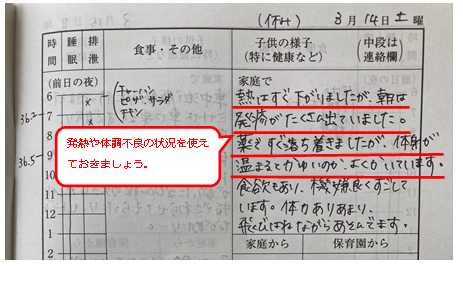 (休み) 3月14日土曜
時間 睡眠 排泄 食事・その他 子供の様子(特に健康など) (中段は連絡欄)
(前日の夜)
チャーハン
ピザ、サラダ
チキン
家庭で
熱はすぐ下がりましたが、朝は
発疹がたくさん出ていました。
薬ですぐ落ち着きましたが、体が
温まるとかゆいのか、よくかいています。
食欲もあり、機嫌良くすごして
います。体力ありあまり、
飛びはねながらあそんでます。
家庭から 保育園から
6 ×
36.2
7 ×
8
9
36.5
10
11
12
1
2
発熱や体調不良の状況を使え
ておきましょう。